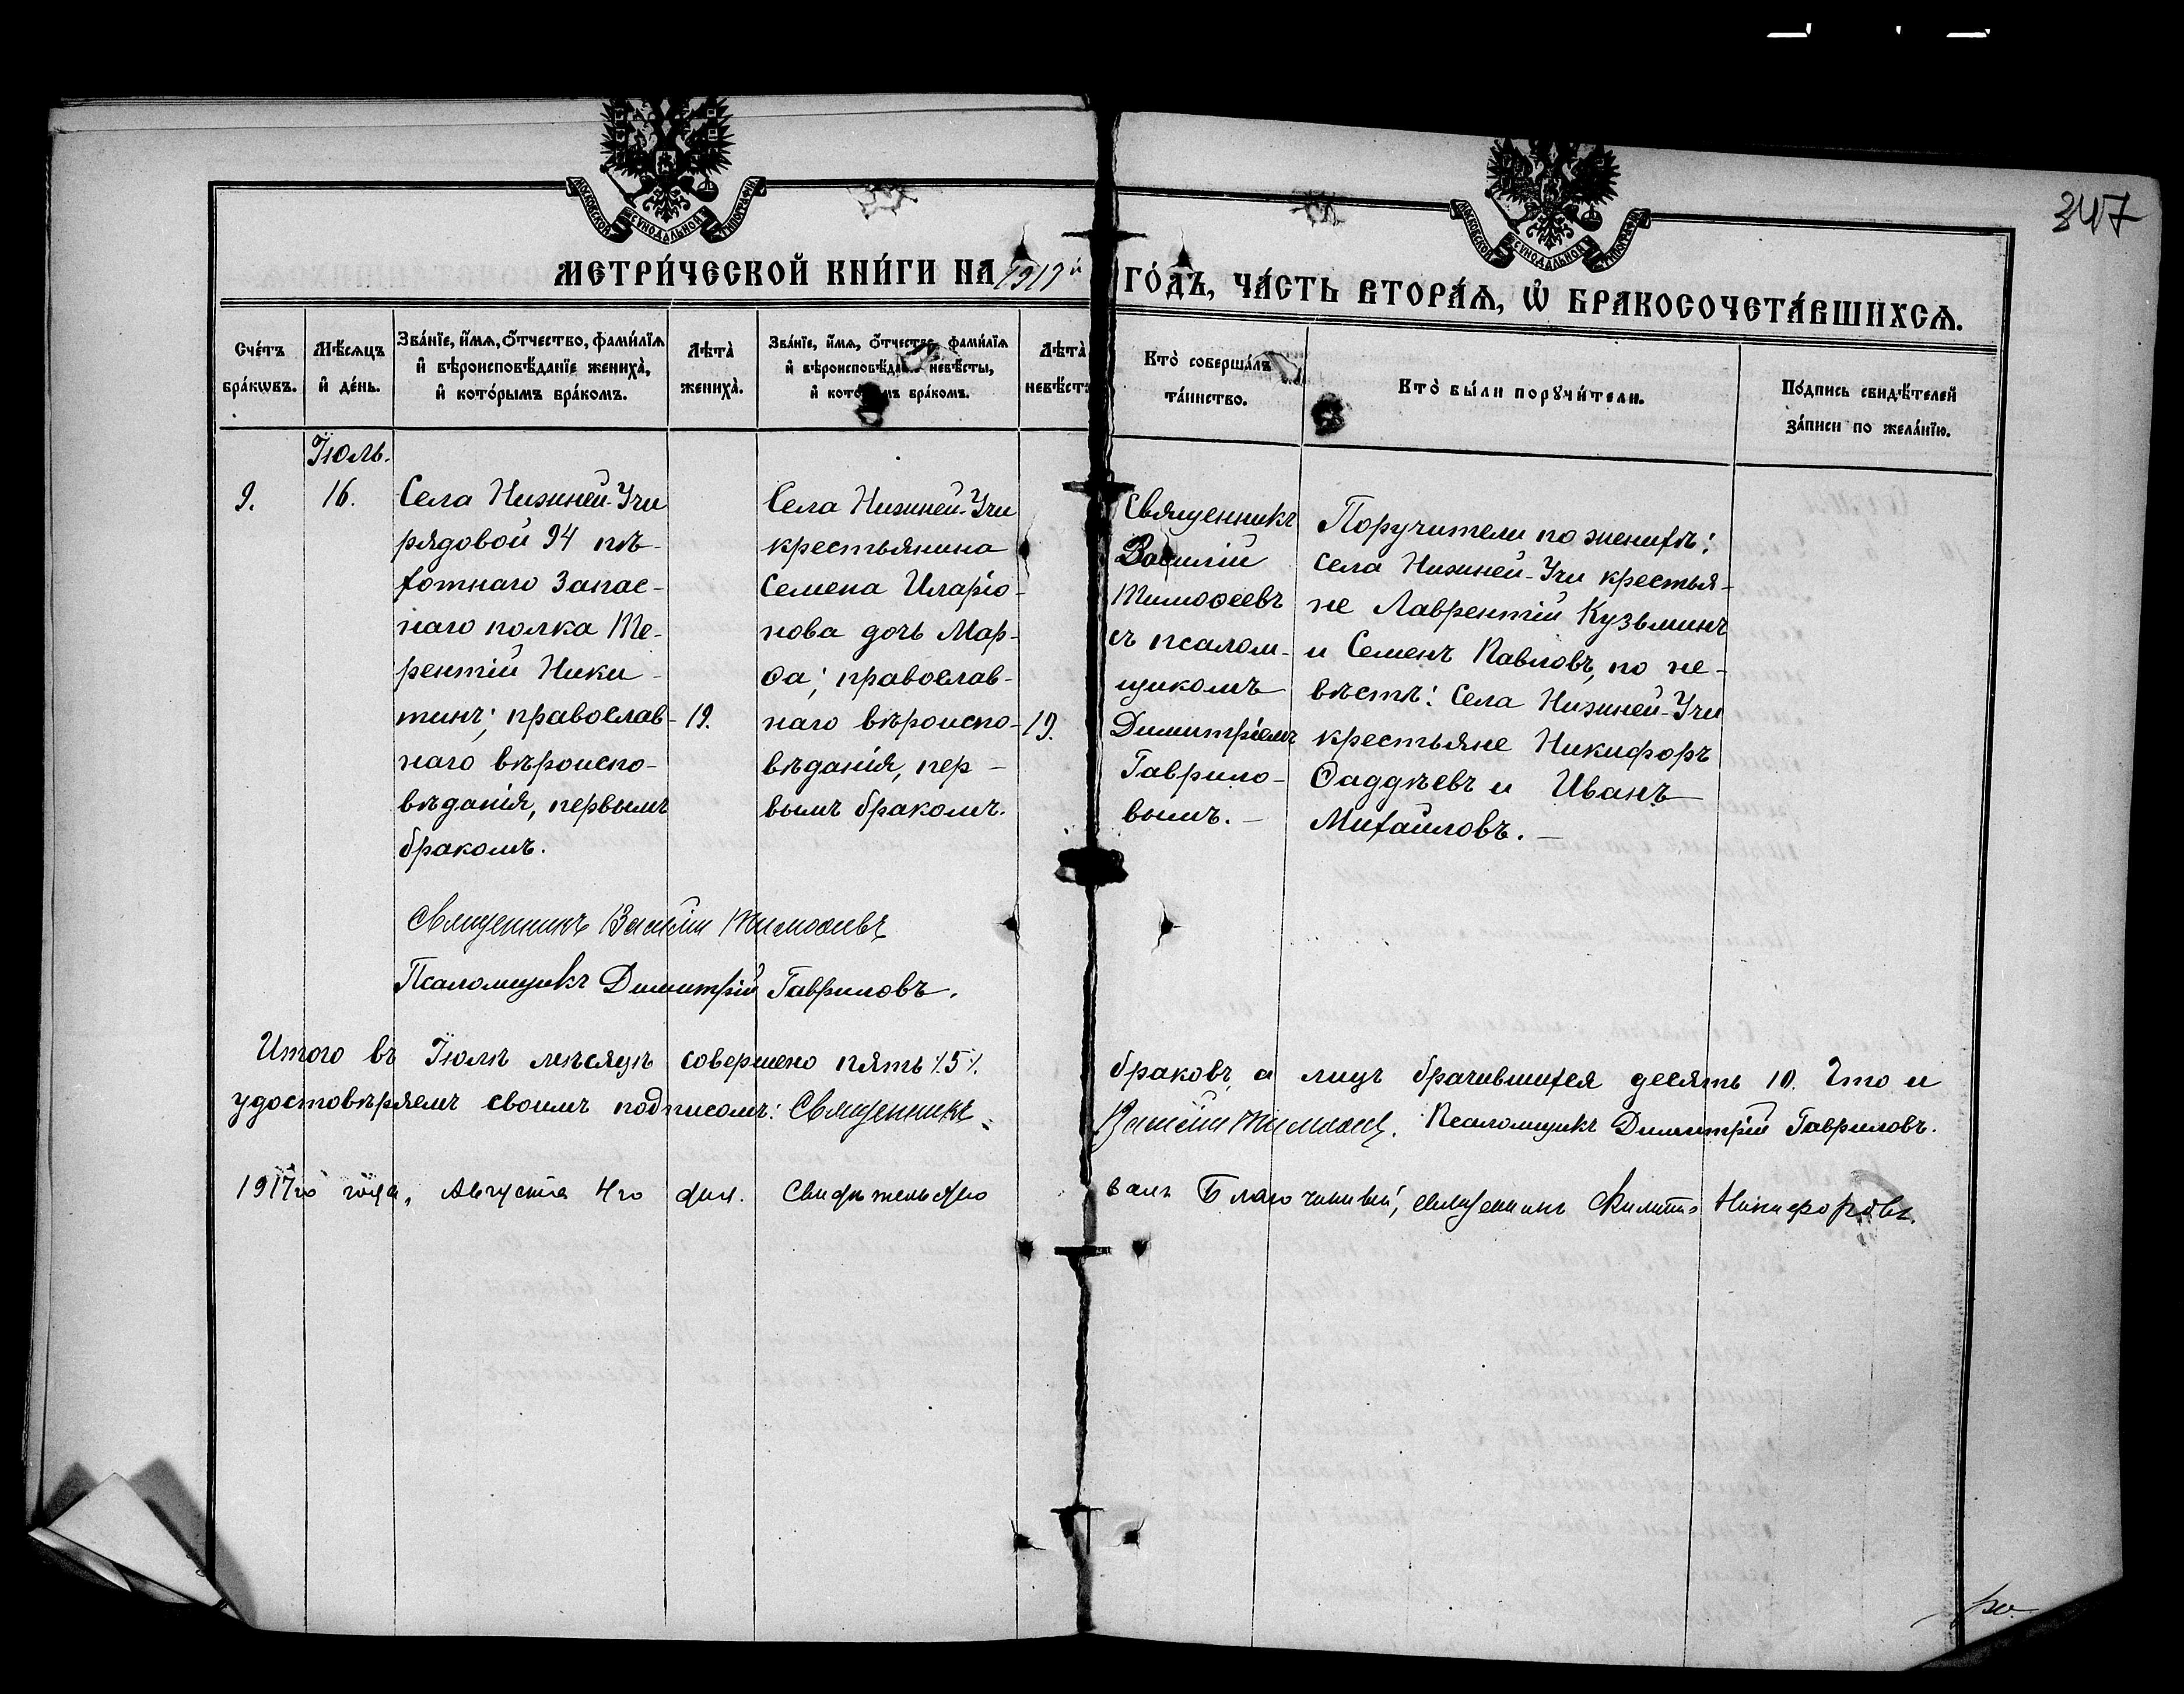 347
МОСКОВСКОЙ СѴНОДАЛЬНОЙ ТИПОГРАФІИ
МОСКОВСКОЙ СѴНОДАЛЬНОЙ ТИПОГРАФІИ
МЕТРИ́ЧЕСКОЙ КНИ́ГИ НА 1917й ГО́ДЪ, ЧА́СТЬ ВТОРА́Ѧ, Ѽ БРАКОСОЧЕТА́ВШИХСѦ.
Сче́тъ
бра́кѡвъ.
Мѣ́сѧцъ
и҆ де́нь.
Зва́нїе, и҆́мѧ, ѻ҆́тчество, фами́лїѧ
и҆ вѣроисповѣ́данїе жениха̀,
и҆ кото́рымъ бра́комъ.
Лѣта̀
жениха̀.
Зва́нїе, и҆́мѧ, ѻ҆́тчество, фами́лїѧ
и҆ вѣроисповѣ́да невѣ́сты,
и҆ кото́рымъ бра́комъ.
Лѣта̀
невѣ́ст
Кто̀ соверша́лъ
та́инство.
Кто̀ бы́ли порꙋчи́тели.
По́дпись свидѣ́телей
за́писи по жела́нїю.
Іюль.
9.
16.
Села Нижней-Учи
рядовой 94 пѣ-
хотнаго Запас-
наго полка Те-
рентій Ники-
тинъ; православ-
наго вѣроиспо-
вѣданія, первымъ
бракомъ.
19.
Села Нижней-Учи
крестьянина
Семена Иларіо-
нова дочь Мар-
ѳа; православ-
наго вѣроиспо-
вѣданія, пер-
вымъ бракомъ.
19.
Священникъ
Василій
Тимоѳеевъ
съ псалом-
щикомъ
Димитріемъ
Гаврило-
вымъ. —
Поручители по женихѣ:
села Нижней-Учи крестья-
не Лаврентій Кузьминъ
и Семенъ Павловъ, по не-
вѣстѣ: Села Нижней-Учи
крестьяне Никифоръ
Ѳаддѣевъ и Иванъ
Михайловъ. —
Священникъ Василій Тимоѳеевъ
Псаломщикъ Димитрій Гавриловъ.
Итого въ Іюлѣ мѣсяцѣ совершено пять ⁒5⁒ браковъ, а лицъ брачившихся десять 10. Что и
удостовѣряемъ своимъ подписомъ: Священникъ Василій Тимоѳеев. Псаломщикъ Димитрій Гавриловъ.
1917го года, Августа 4го дня. Свидѣтельство валъ Благочинный, священникъ Никифоровъ.